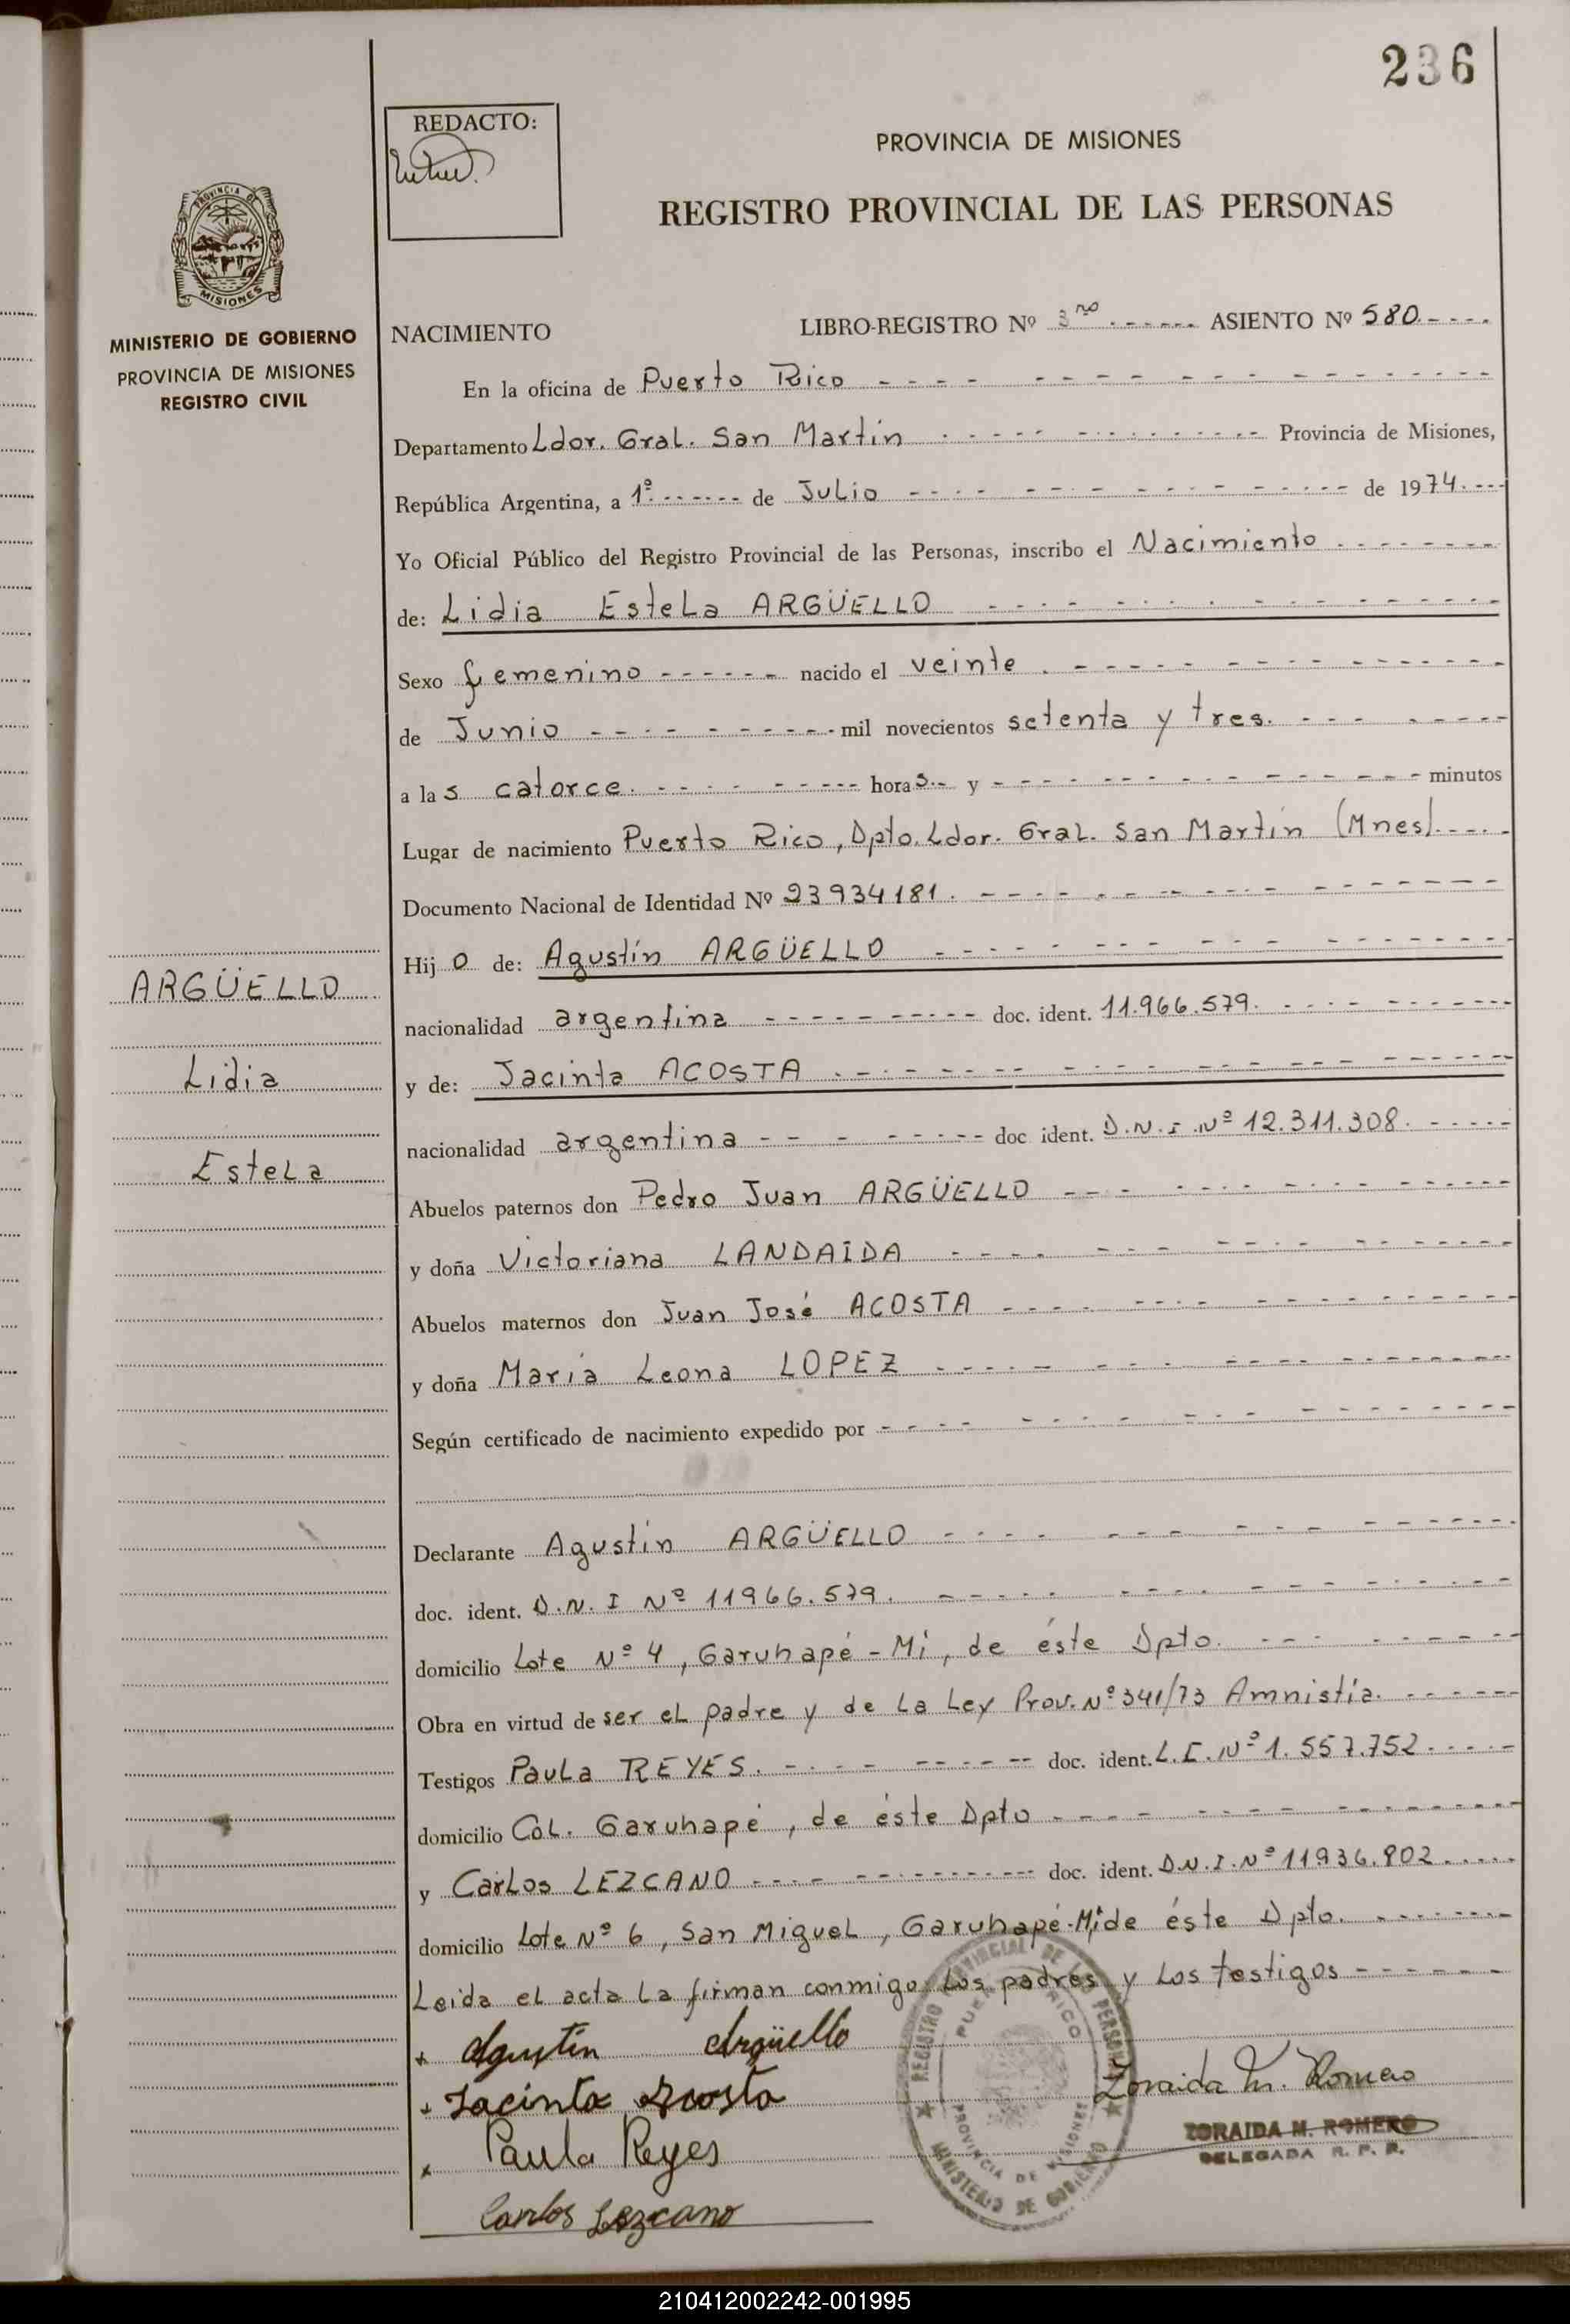 236
REDACTO:
PROVINCIA DE MISIONES
REGISTRO PROVINCIAL DE LAS PERSONAS
PROVINCIA DE
MISIONES
MINISTERIO DE GOBIERNO
PROVINCIA DE MISIONES
REGISTRO CIVIL
NACIMIENTO LIBRO-REGISTRO Nº 3ro ASIENTO Nº 580
En la oficina de Puerto Rico
Departamento Ldor. Gral. San Martín Provincia de Misiones,
República Argentina, a 1º de Julio de 1974
Yo Oficial Público del Registro Provincial de las Personas, inscribo el Nacimiento
de: Lidia Estela ARGÜELLO
Sexo femenino nacido el veinte
de Junio mil novecientos setenta y tres.
a las catorce. horas y minutos
Lugar de nacimiento Puerto Rico, Dpto. Ldor. Gral. San Martín (Mnes).
Documento Nacional de Identidad Nº 23934181.
Hijo de: Agustín ARGÜELLO
nacionalidad argentina doc. ident. 11.966.579.
y de: Jacinta ACOSTA
nacionalidad argentina doc ident. D.N.I.Nº 12.311.308.
Abuelos paternos don Pedro Juan ARGÜELLO
y doña Victoriana LANDAIDA
Abuelos maternos don Juan José ACOSTA
y doña María Leona LOPEZ
Según certificado de nacimiento expedido por
Declarante Agustín ARGÜELLO
doc. ident. D.N.I Nº 11966.579.
domicilio Lote Nº 4, Garuhapé - Mi, de éste Dpto.
Obra en virtud de ser el padre y de la Ley Prov. Nº 341/73 Amnistía.
Testigos Paula REYES. doc. ident. L.C. Nº 1.557.752
domicilio Col. Garuhapé, de éste Dpto
y Carlos LEZCANO doc. ident. D.N.I.Nº 11936.802
domicilio Lote Nº 6, San Miguel, Garuhapé-Mi, de éste Dpto.
Leída el acta la firman conmigo los padres y los testigos
Agustín Argüello
Jacinta Acosta
Paula Reyes
Carlos Lezcano
Zoraida M. Romero
ZORAIDA M. ROMERO
DELEGADA R. P. P.
REGISTRO PROVINCIAL DE LAS PERSONAS
PUERTO RICO
PROVINCIA DE MISIONES
MINISTERIO DE GOBIERNO
ARGÜELLO
Lidia
Estela
210412002242-001995